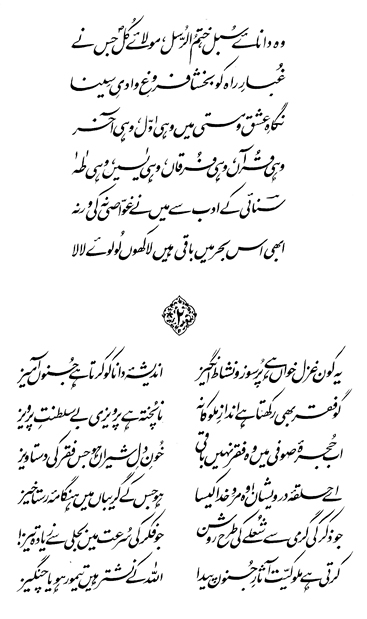 وہ دانائے سبل، ختم الرسل، مولائے کل جس نے
غبارِ راہ کو بخشا فروغِ وادیِ سینا
نگاہِ عشق و مستی میں وہی اول، وہی آخر
وہی قرآں، وہی فرقاں، وہی یٰسیں، وہی طٰہٰ
سنائی کے ادب سے میں نے غواصی نہ کی ورنہ
ابھی اس بحر میں باقی ہیں لاکھوں لولوئے لالا
۲
یہ کون غزل خواں ہے پرسوز و نشاط انگیز
اندیشۂ دانا کو کرتا ہے جنوں آمیز
گو فقر بھی رکھتا ہے اندازِ ملوکانہ
ناپختہ ہے پرویزی بے سلطنتِ پرویز
اب حجرۂ صوفی میں وہ فقر نہیں باقی
خونِ دلِ شیراں ہو جس فقر کی دستاویز
اے حلقۂ درویشاں! وہ مردِ خدا کیسا
ہو جس کے گریباں میں ہنگامۂ رستاخیز
جو ذکر کی گرمی سے شعلے کی طرح روشن
جو فکر کی سرعت میں بجلی سے زیادہ تیز!
کرتی ہے ملوکیت آثارِ جنوں پیدا
اللہ کے نشتر ہیں تیمور ہو یا چنگیز